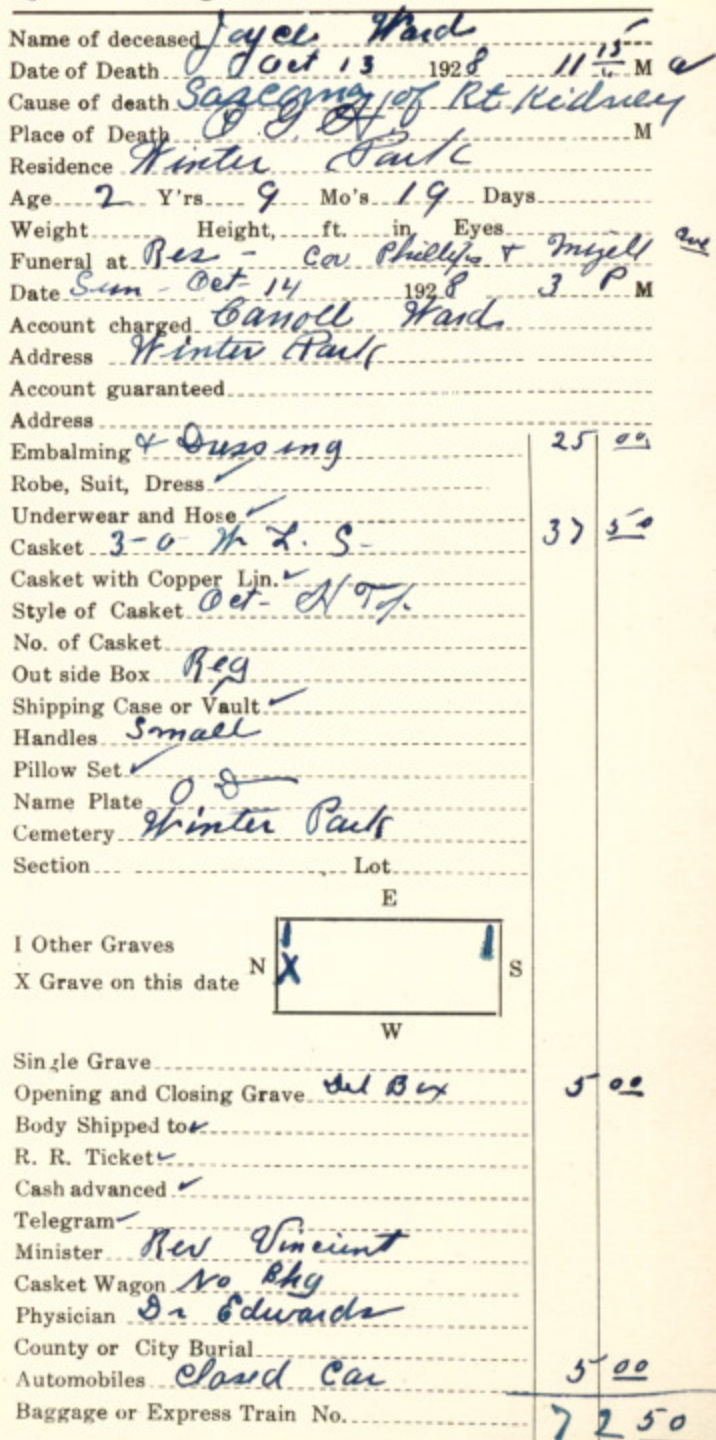 Name of deceased Joyce Ward
Date of Death Oct 13 1928 11 15 M a
Cause of death Sarcoma of Rt Kidney
Place of Death O G H M
Residence Winter Park
Age 2 Y'rs 9 Mo's 19 Days
Weight Height, ft. in. Eyes
Funeral at Res - Cor Phillips & Mizell ave
Date Sun - Oct - 14 1928 3 P M
Account charged Carroll Ward
Address Winter Park
Account guaranteed
Address
Embalming & Dressing 25 00
Robe, Suit, Dress ✓
Underwear and Hose ✓
Casket 3-0 W L. S- 37 50
Casket with Copper Lin. ✓
Style of Casket Oct- H Top
No. of Casket
Out side Box Reg
Shipping Case or Vault ✓
Handles Small
Pillow Set ✓
Name Plate O D
Cemetery Winter Park
Section Lot
E
I Other Graves
N X S
X Grave on this date
W
Single Grave
Opening and Closing Grave Del Box 5 00
Body Shipped to ✓
R. R. Ticket ✓
Cash advanced ✓
Telegram ✓
Minister Rev Vincient
Casket Wagon No Bhg
Physician Dr Edwards
County or City Burial
Automobiles Closed Car 5 00
Baggage or Express Train No. 72 50